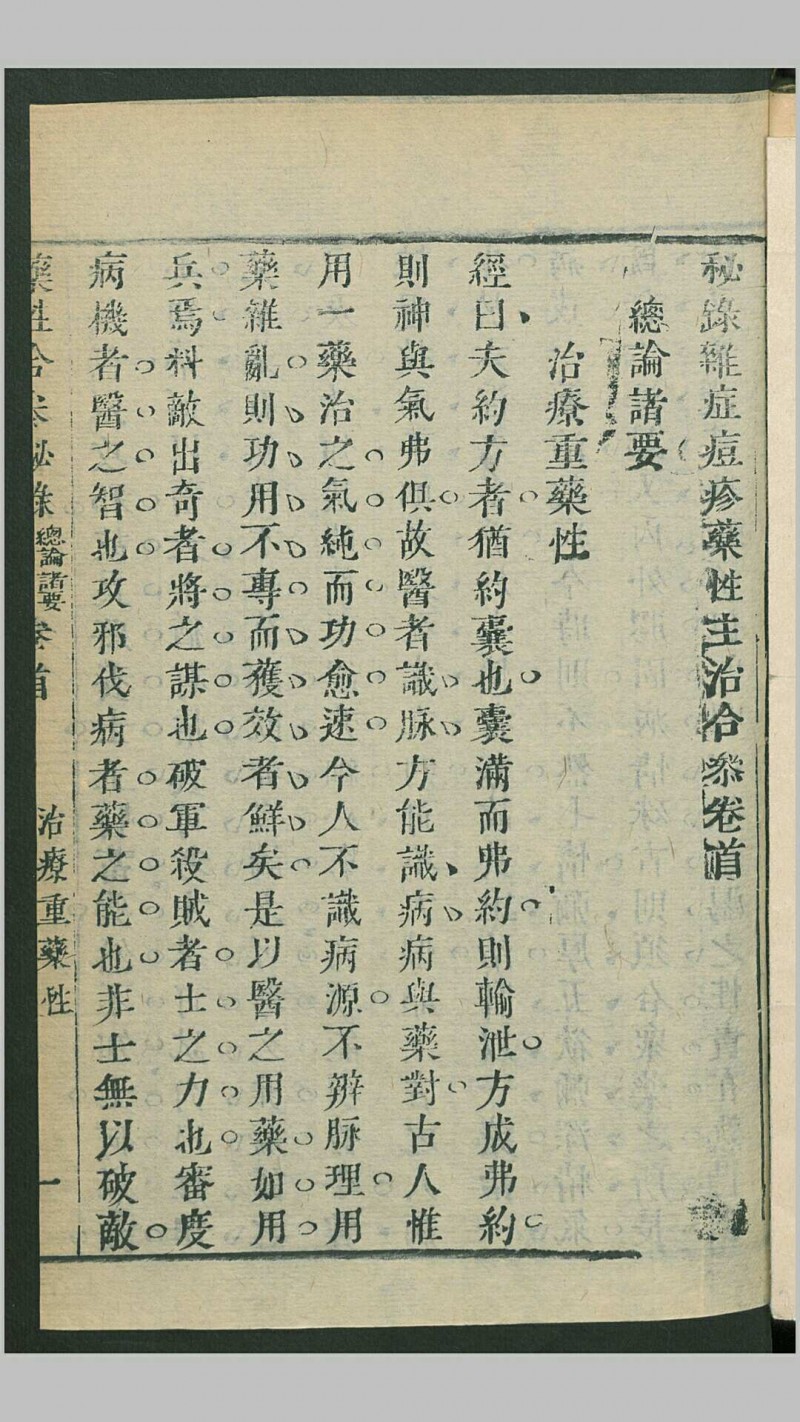 秘錄雜症痘疹藥性主治合叅卷首
總論諸要
治療重藥性
經曰夫約方者猶約囊也囊滿而弗約則輸泄方成弗約
則神與氣弗俱故醫者識脉方能識病病與藥對古人惟
用一藥治之氣純而功愈速今人不識病源不辨脉理用
藥雜亂則功用不專而獲效者鮮矣是以醫之用藥如用
兵焉料敵出奇者將之謀也破軍殺賊者士之力也審度
病機者醫之智也攻邪伐病者藥之能也非士無以破敵
藥性合叅秘錄 總論諸要 卷首 治療重藥性 一